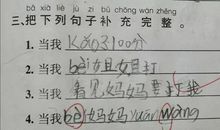 bǎ xià liè jù zi bǔ chōng wán zhěng
三.把下列句子补充完整。
1. 当我kǎo了100分
2. 当我bèi姐姐打
3. 当我看见妈妈打我
4. 当我bèi妈妈yuān wàng